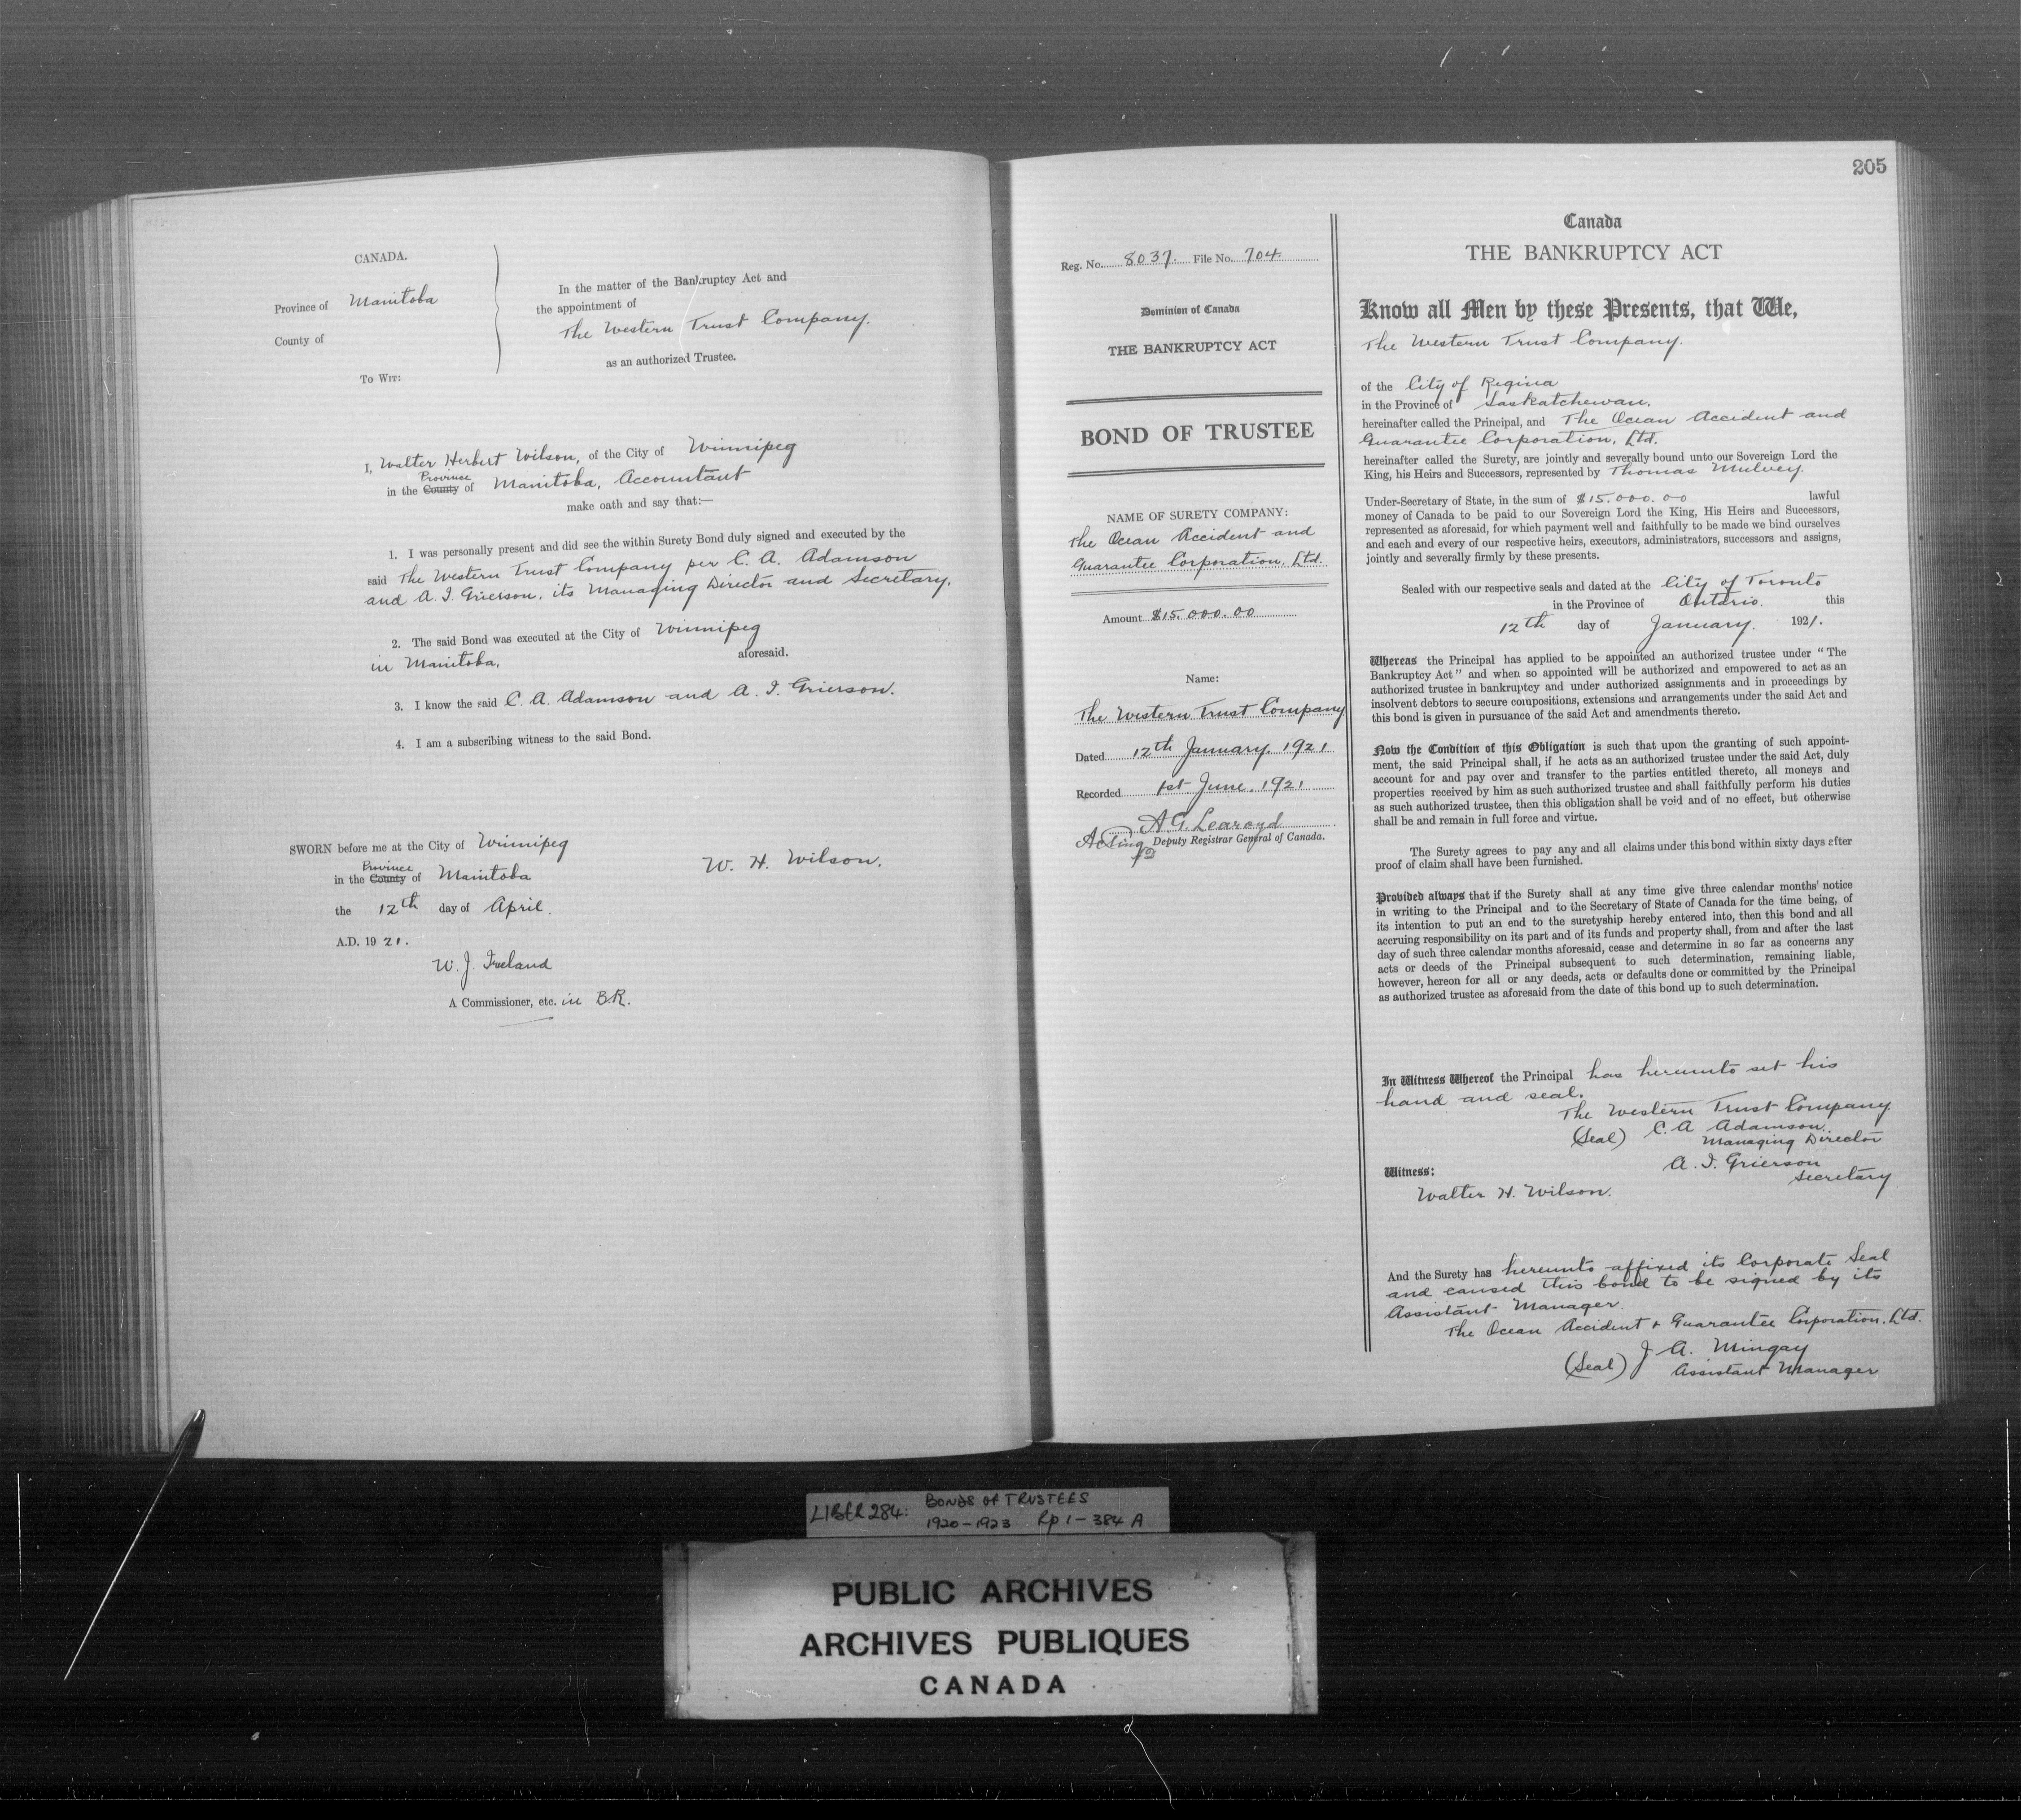 CANADA.
Province of Manitoba
County of
To Wit:
In the matter of the Bankruptcy Act and
the appointment of
The Western Trust Company.
as an authorized Trustee.
I, Walter Herbert Wilson, of the City of Winnipeg
Province
in the County of Manitoba, Accountant
make oath and say that:—
1. I was personally present and did see the within Surety Bond duly signed and executed by the
said The Western Trust Company per C. A. Adamson
and A. I. Grierson, its Managing Director and Secretary,
2. The said Bond was executed at the City of Winnipeg
in Manitoba, aforesaid.
3. I know the said C. A. Adamson and A. I. Grierson.
4. I am a subscribing witness to the said Bond.
SWORN before me at the City of Winnipeg
Province
in the County of Manitoba
the 12th day of April.
A.D. 1921.
W. H. Wilson.
W. J. Ireland
A Commissioner, etc. in B.R.
205
Reg. No. 8037. File No. 704.
Dominion of Canada
THE BANKRUPTCY ACT
BOND OF TRUSTEE
NAME OF SURETY COMPANY:
The Ocean Accident and
Guarantee Corporation, Ltd.
Amount $15.000.00
Name:
The Western Trust Company
Dated 12th January, 1921
Recorded 1st June, 1921
A. G. Learoyd
Acting Deputy Registrar General of Canada.
Canada
THE BANKRUPTCY ACT
Know all Men by these Presents, that We,
The Western Trust Company.
of the City of Regina
in the Province of Saskatchewan.
hereinafter called the Principal, and The Ocean Accident and
Guarantee Corporation, Ltd.
hereinafter called the Surety, are jointly and severally bound unto our Sovereign Lord the
King, his Heirs and Successors, represented by Thomas Mulvey.
Under-Secretary of State, in the sum of $15.000.00 lawful
money of Canada to be paid to our Sovereign Lord the King, His Heirs and Successors,
represented as aforesaid, for which payment well and faithfully to be made we bind ourselves
and each and every of our respective heirs, executors, administrators, successors and assigns,
jointly and severally firmly by these presents.
Sealed with our respective seals and dated at the City of Toronto
in the Province of Ontario. this
12th day of January. 1921.
Whereas the Principal has applied to be appointed an authorized trustee under "The
Bankruptcy Act" and when so appointed will be authorized and empowered to act as an
authorized trustee in bankruptcy and under authorized assignments and in proceedings by
insolvent debtors to secure compositions, extensions and arrangements under the said Act and
this bond is given in pursuance of the said Act and amendments thereto.
Now the Condition of this Obligation is such that upon the granting of such appoint-
ment, the said Principal shall, if he acts as an authorized trustee under the said Act, duly
account for and pay over and transfer to the parties entitled thereto, all moneys and
properties received by him as such authorized trustee and shall faithfully perform his duties
as such authorized trustee, then this obligation shall be void and of no effect, but otherwise
shall be and remain in full force and virtue.
The Surety agrees to pay any and all claims under this bond within sixty days after
proof of claim shall have been furnished.
Provided always that if the Surety shall at any time give three calendar months' notice
in writing to the Principal and to the Secretary of State of Canada for the time being, of
its intention to put an end to the suretyship hereby entered into, then this bond and all
accruing responsibility on its part and of its funds and property shall, from and after the last
day of such three calendar months aforesaid, cease and determine in so far as concerns any
acts or deeds of the Principal subsequent to such determination, remaining liable,
however, hereon for all or any deeds, acts or defaults done or committed by the Principal
as authorized trustee as aforesaid from the date of this bond up to such determination.
In Witness Whereof the Principal has hereunto set his
hand and seal.
The Western Trust Company
(Seal) C. A Adamson.
Managing Director
A. I. Grierson
Secretary
Witness:
Walter H. Wilson.
And the Surety has hereunto affixed its Corporate Seal
and caused this bond to be signed by its
Assistant Manager.
The Ocean Accident & Guarantee Corporation. Ltd.
(Seal) J. A. Mingay
Assistant Manager
LIBER 284: BONDS OF TRUSTEES
1920-1923 Rp 1-384 A
PUBLIC ARCHIVES
ARCHIVES PUBLIQUES
CANADA